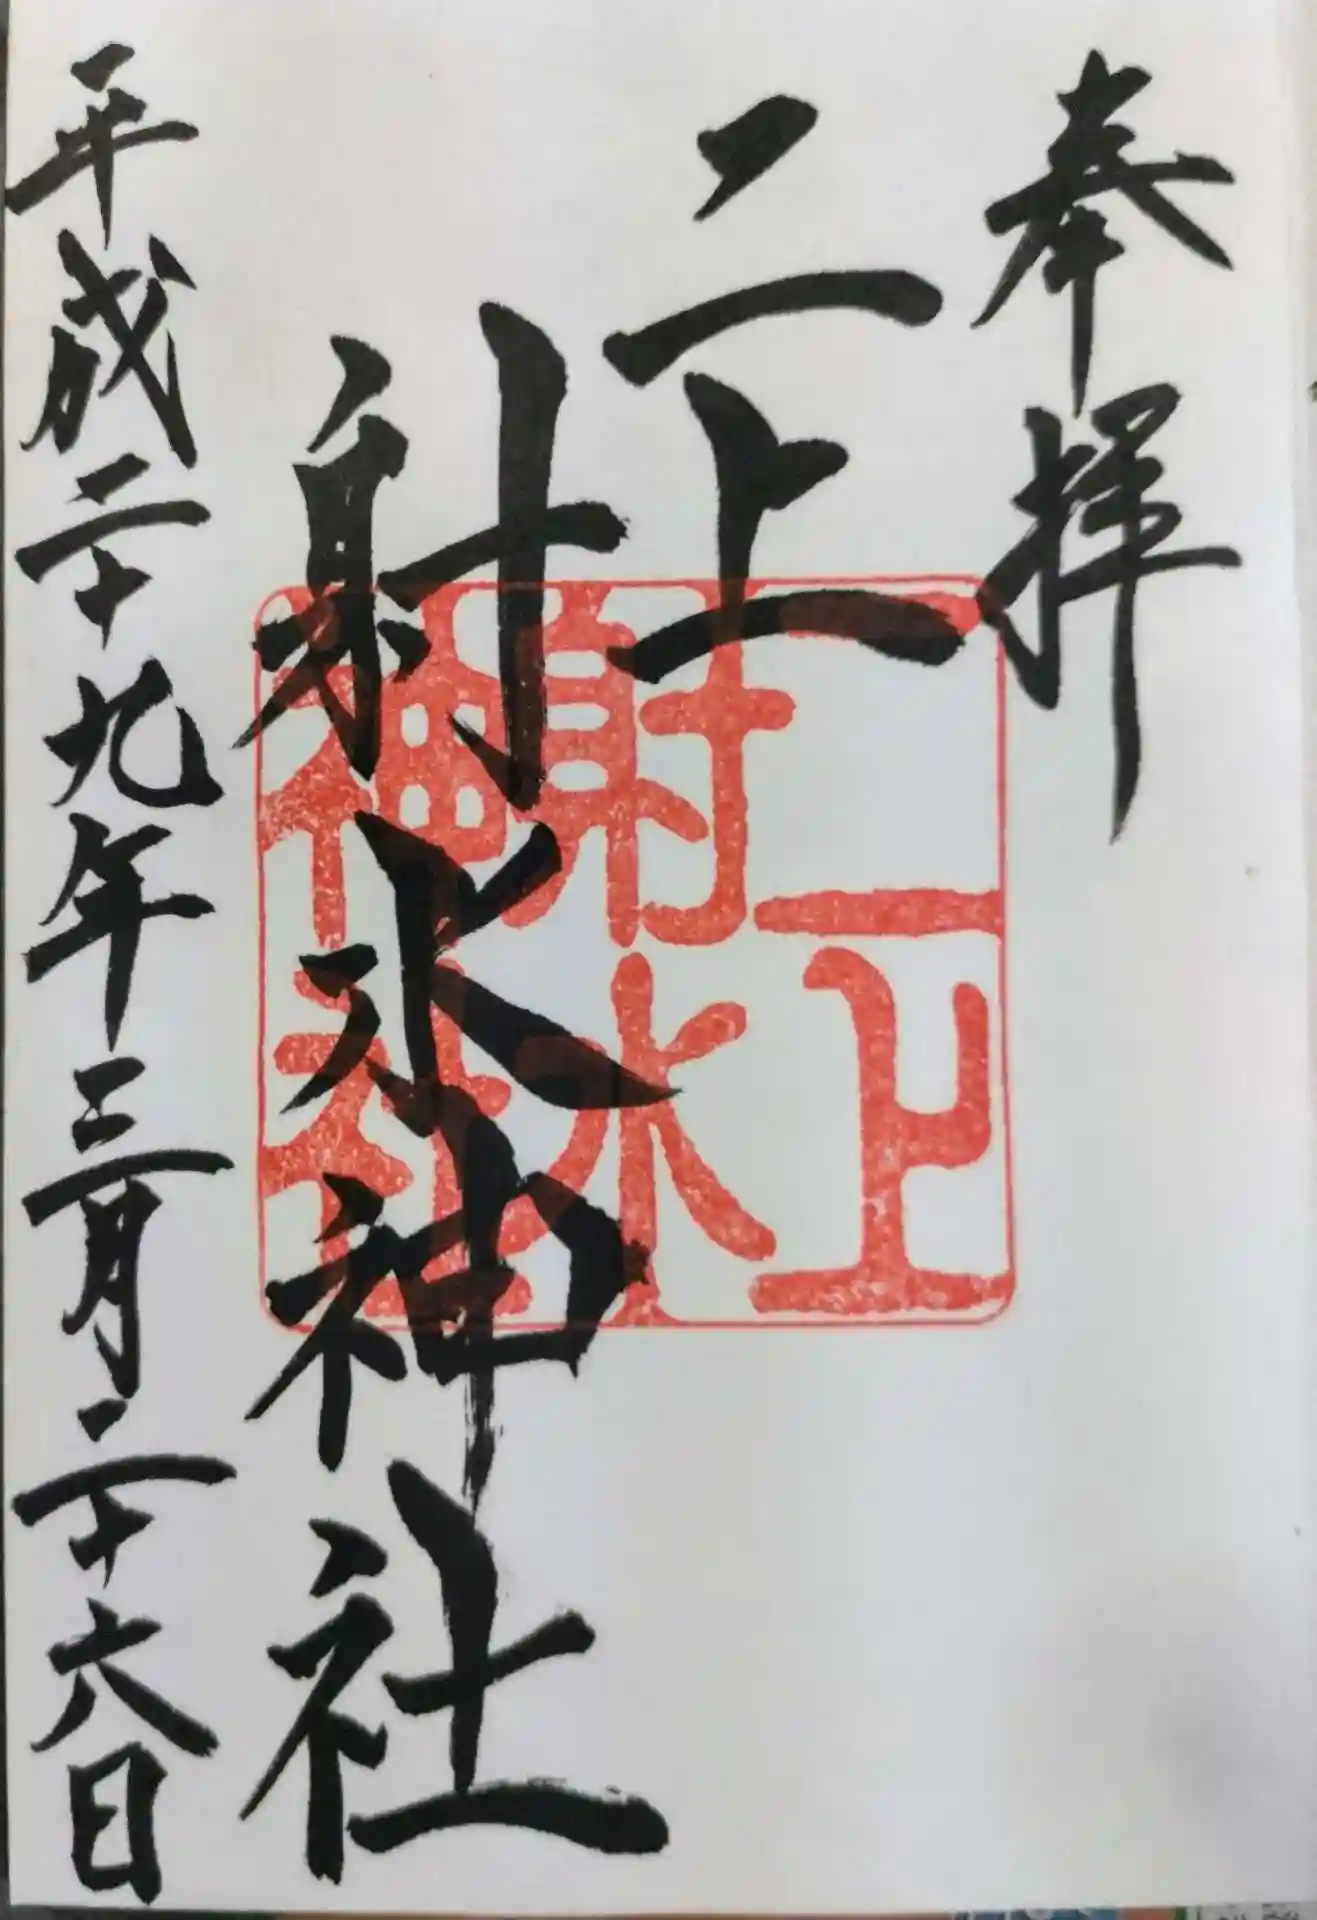 奉拝
二上
射水神社
平成二十九年三月二十六日
二上
射水
神社